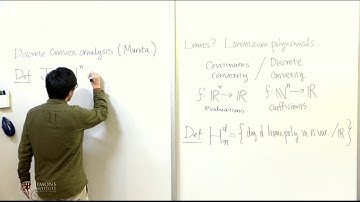 Discrete Convex analysis (Murota)
Def n
What's? Lorentzian polynomials
Continuous / Discrete
Convexity Convexity
f: ℝⁿ → ℝ f: ℕⁿ → ℝ
evaluations coefficients
Def H_n^d = { deg d hom. poly in n var. / ℝ }
SIMONS
INSTITUTE